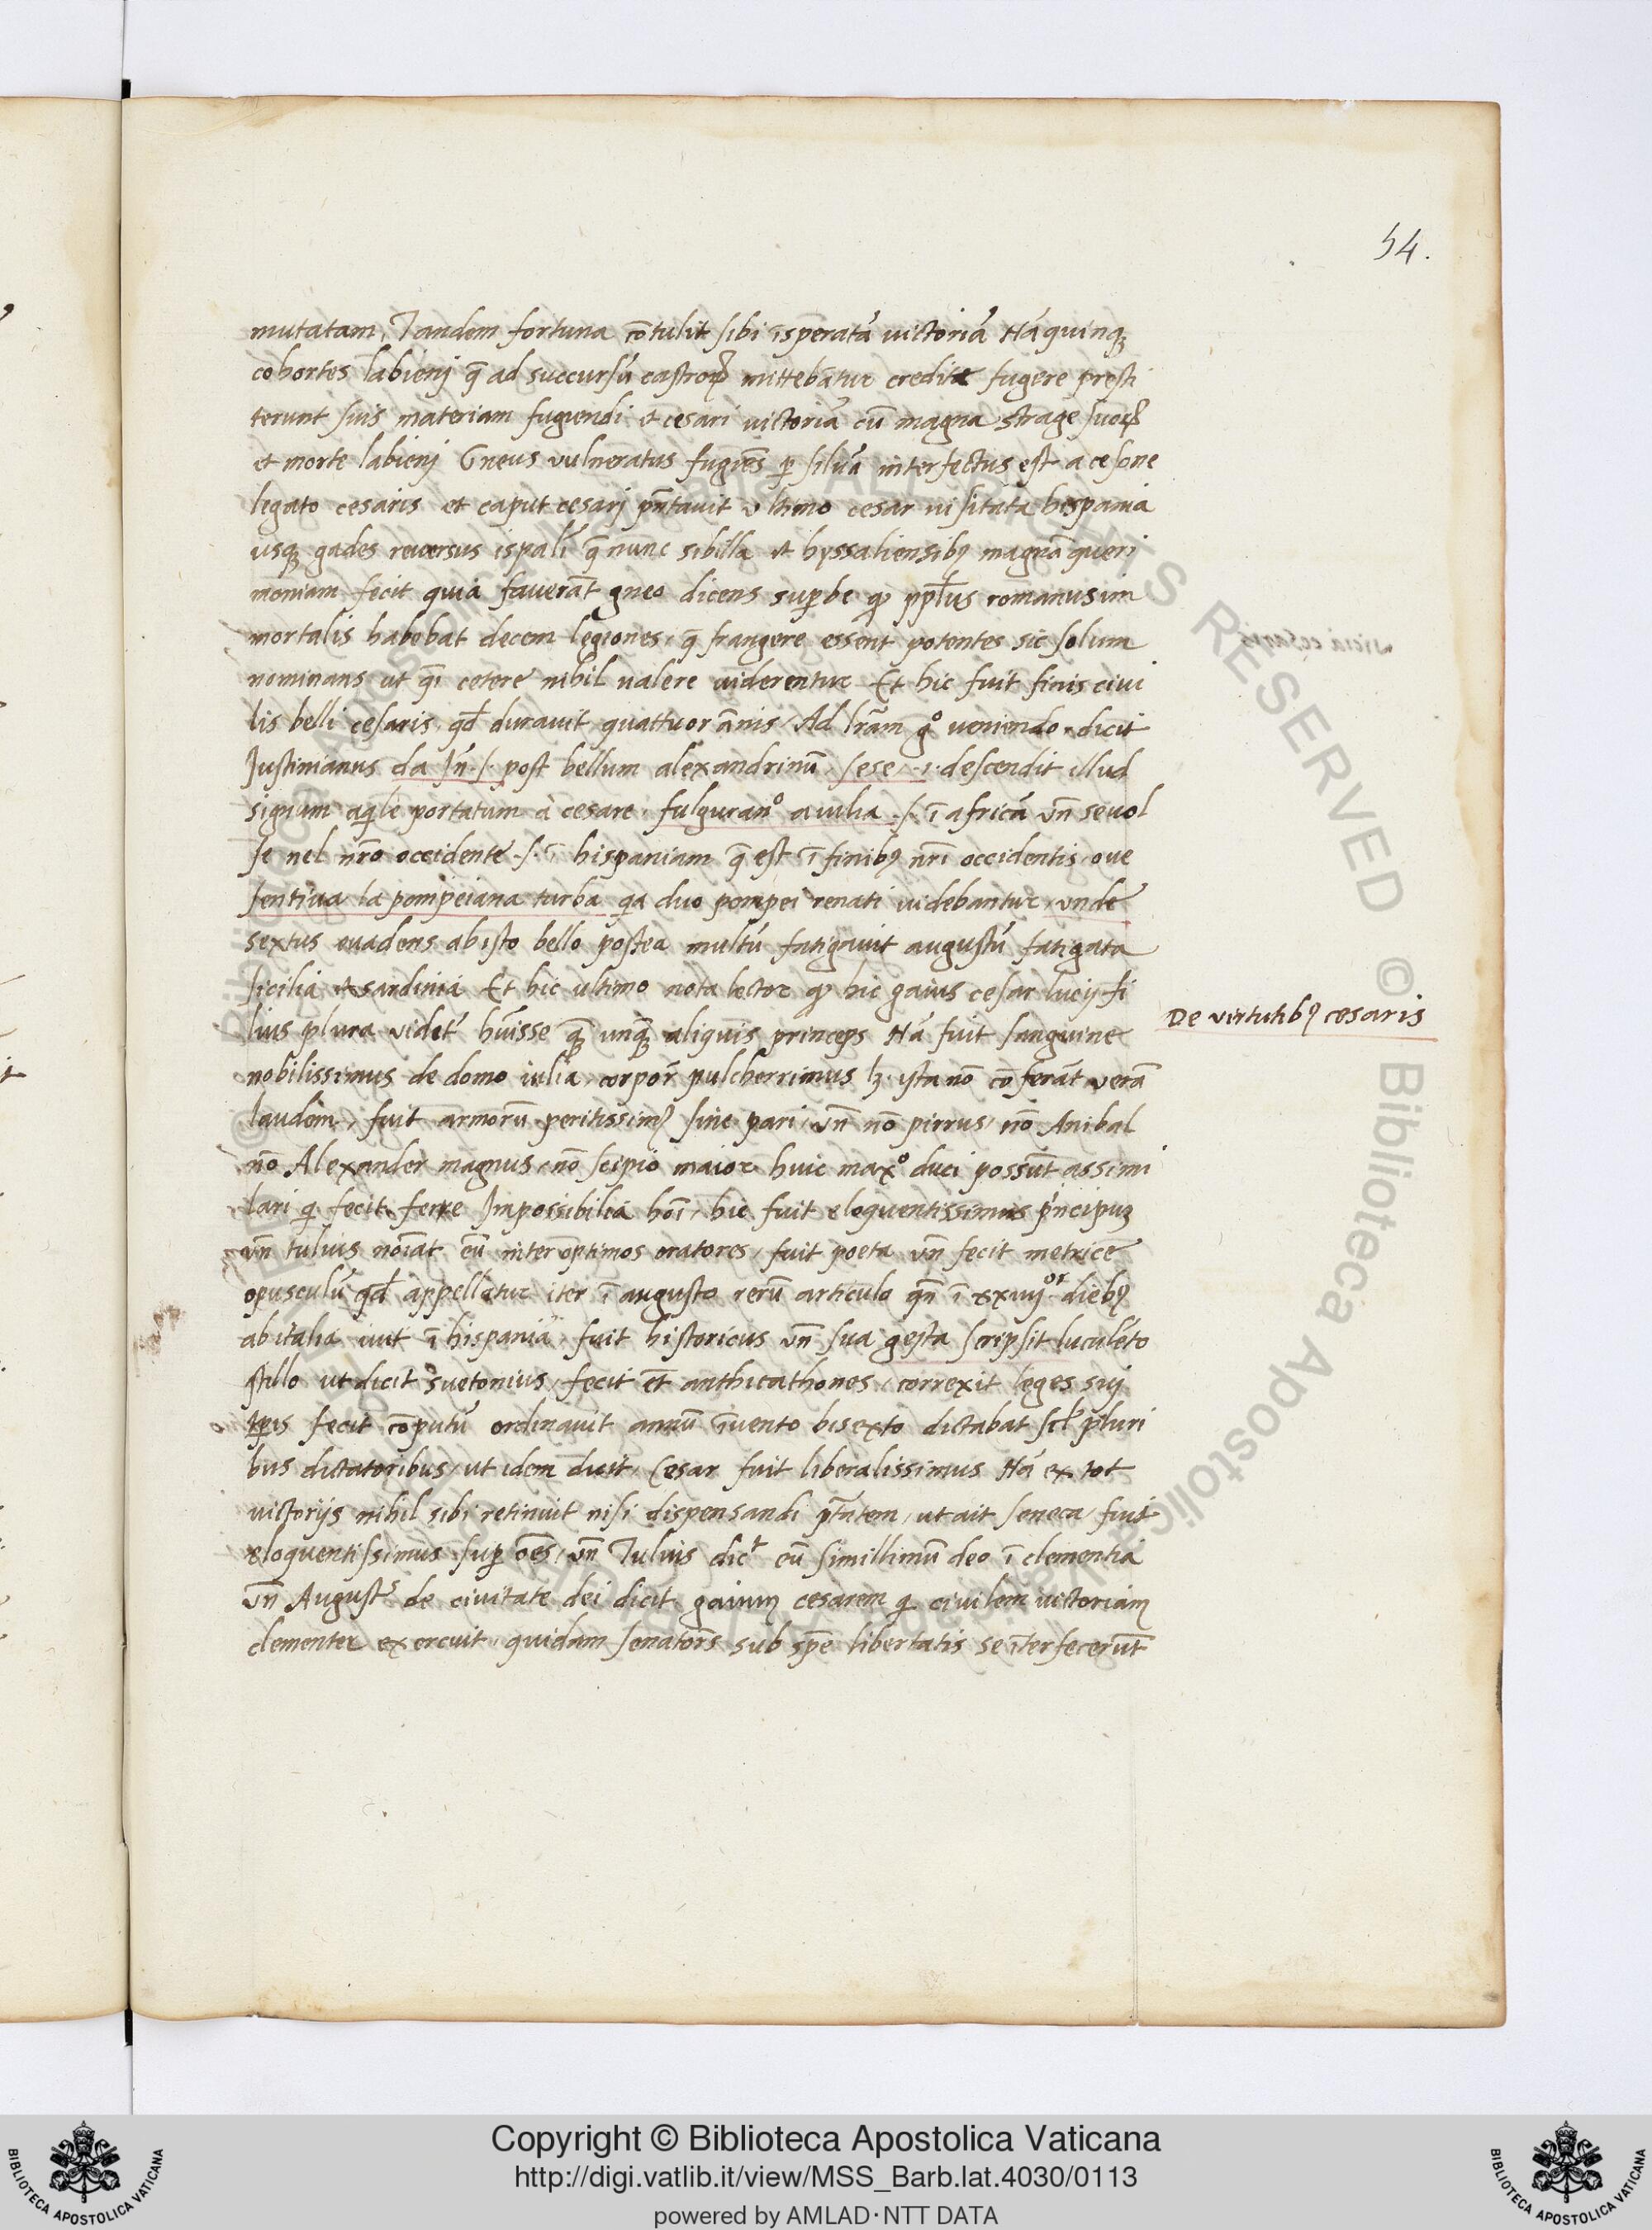 54.
mutatam, Tandem fortuna cōtulit sibi īsperatā victoriā Nā quinqꝫ
cohortes labienj q̄ ad succursū castroꝝ mittebātur credite fugere presti
terunt suis materiam fugiendi et cesari victoriā cū magna strage suoꝝ
et morte labienj Gneus vulneratus fugiēs ꝑ siluā interfectus est a cesone
legato cesaris et caput cesarj pn̄tauit vltimo cesar visitata hespania
usqꝫ gades reuersus ispalī q̄ nunc sibilla et hyssaliensibꝰ magnā queri
moniam fecit quia fauerāt gneo dicens suꝑbe ꝙ pp̄lus romanus im
mortalis habebat decem legiones, q̄ frangere essent potentes sic solum
nominans ut q̄i cetere nihil ualere viderentur Et hic fuit finis ciui
lis belli cesaris, qd̄ durauit quattuor ānis, Ad lr̄am gͦ veniendo, dicit
Justinianus da Jn̄ .s. post bellum alexandrinū, sese .i. descendit illud
signum aqile portatum à cesare, fulguranͦ a iulia .s. ī africā vn̄ se uol
se nel nr̄o occidente .s. ī hispaniam q̄ est ī finibꝰ nr̄i occidentis, oue
sentiua la pompeiana turba qa duo pompei renati videbantur, vnde
sextus euadens ab isto bello postea multū fatigauit augustū fatigata
sicilia et sardinia Et hic ultimo nota lector ꝙ hic gaius cesar lucij fi
lius plura videt̄ hūisse q̄ꝫ unq̄ꝫ aliquis princeps Nā fuit sanguine
De virtutibꝰ cesaris
nobilissimus de domo iulia, corpor̄ pulcherrimus lꝫ ista nō cōferāt verā
laudem, fuit armorū peritissimꝰ sine pari, vn̄ nō pirrus, nō Anibal
nō Alexander magnus, nō scipio maior huic maxͦ duci possūt assimi
lari q fecit ferre Jmpossibilia hōi, hic fuit eloquentissimus pͥncipuꝫ
vn̄ tulius noīat eū inter optimos oratores, fuit poeta vn̄ fecit metrice
opusculū qd̄ appellatur iter ī augusto rerū articulo qn̄ ī xxiiijᵒʳ diebꝰ
ab italia iuit ī hispaniā, fuit historicus vn̄ sua gesta scripsit luculēto
stillo ut dicit suetonius, fecit et̄ anthicathones, correxit leges sui
tp̄is fecit cōputū ordinauit annū īuento bisexto dictabat sil̄ pluri
bus dictatoribus, ut idem dicit, Cesar fuit liberalissimus Nā ex tot
victorijs nihil sibi retinuit nisi dispensandi pt̄atem, ut ait seneca, fuit
eloquentissimus suꝑ oēs, vn̄ Tulius dicᵗ eū simillimū deo ī clementia
vn̄ Augustˢ de ciuitate dei dicit gaium cesarem q ciuilem victoriam
clementer exercuit, quidam senatorēs sub spē libertatis se īterfecerūt
Copyright © Biblioteca Apostolica Vaticana
http://digi.vatlib.it/view/MSS_Barb.lat.4030/0113
powered by AMLAD·NTT DATA
BIBLIOTECA APOSTOLICA VATICANA
BIBLIOTECA APOSTOLICA VATICANA